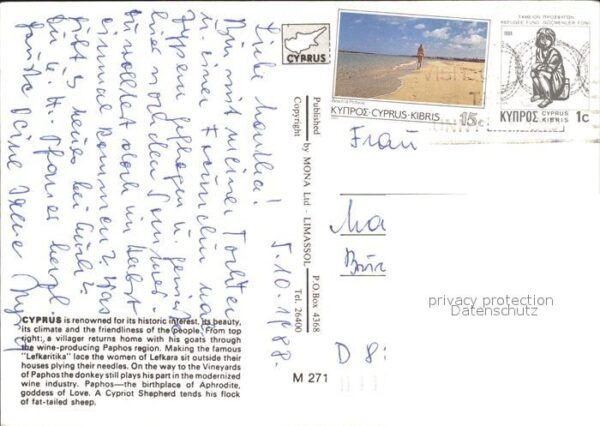 5.10.1988.
Liebe Monika!
Bin mit meiner Tochter
u. einer Freundin nach
Zypern geflogen u. genieße
hier noch den Sommer.
wolltest doch im Herbst
einmal kommen? Was
gibt es neues bei Euch?
Dir u. H. herzl.
Grüße Deine
CYPRUS
ΤΑΜΕΙΟΝ ΠΡΟΣΦΥΓΩΝ
REFUGEE FUND GÖÇMENLER FONU
1984
ΚΥΠΡΟΣ·CYPRUS·KIBRIS 15c
ΚΥΠΡΟΣ CYPRUS KIBRIS 1c
Published by MONA Ltd - LIMASSOL P.O.Box 4368
Copyright Tel. 26400
Frau
Ma
D 8
privacy protection
Datenschutz
CYPRUS is renowned for its historic interest, its beauty,
its climate and the friendliness of the people. From top
right: a villager returns home with his goats through
the wine-producing Paphos region. Making the famous
"Lefkaritika" lace the women of Lefkara sit outside their
houses plying their needles. On the way to the Vineyards
of Paphos the donkey still plays his part in the modernized
wine industry. Paphos—the birthplace of Aphrodite,
goddess of Love. A Cypriot Shepherd tends his flock
of fat-tailed sheep.
M 271